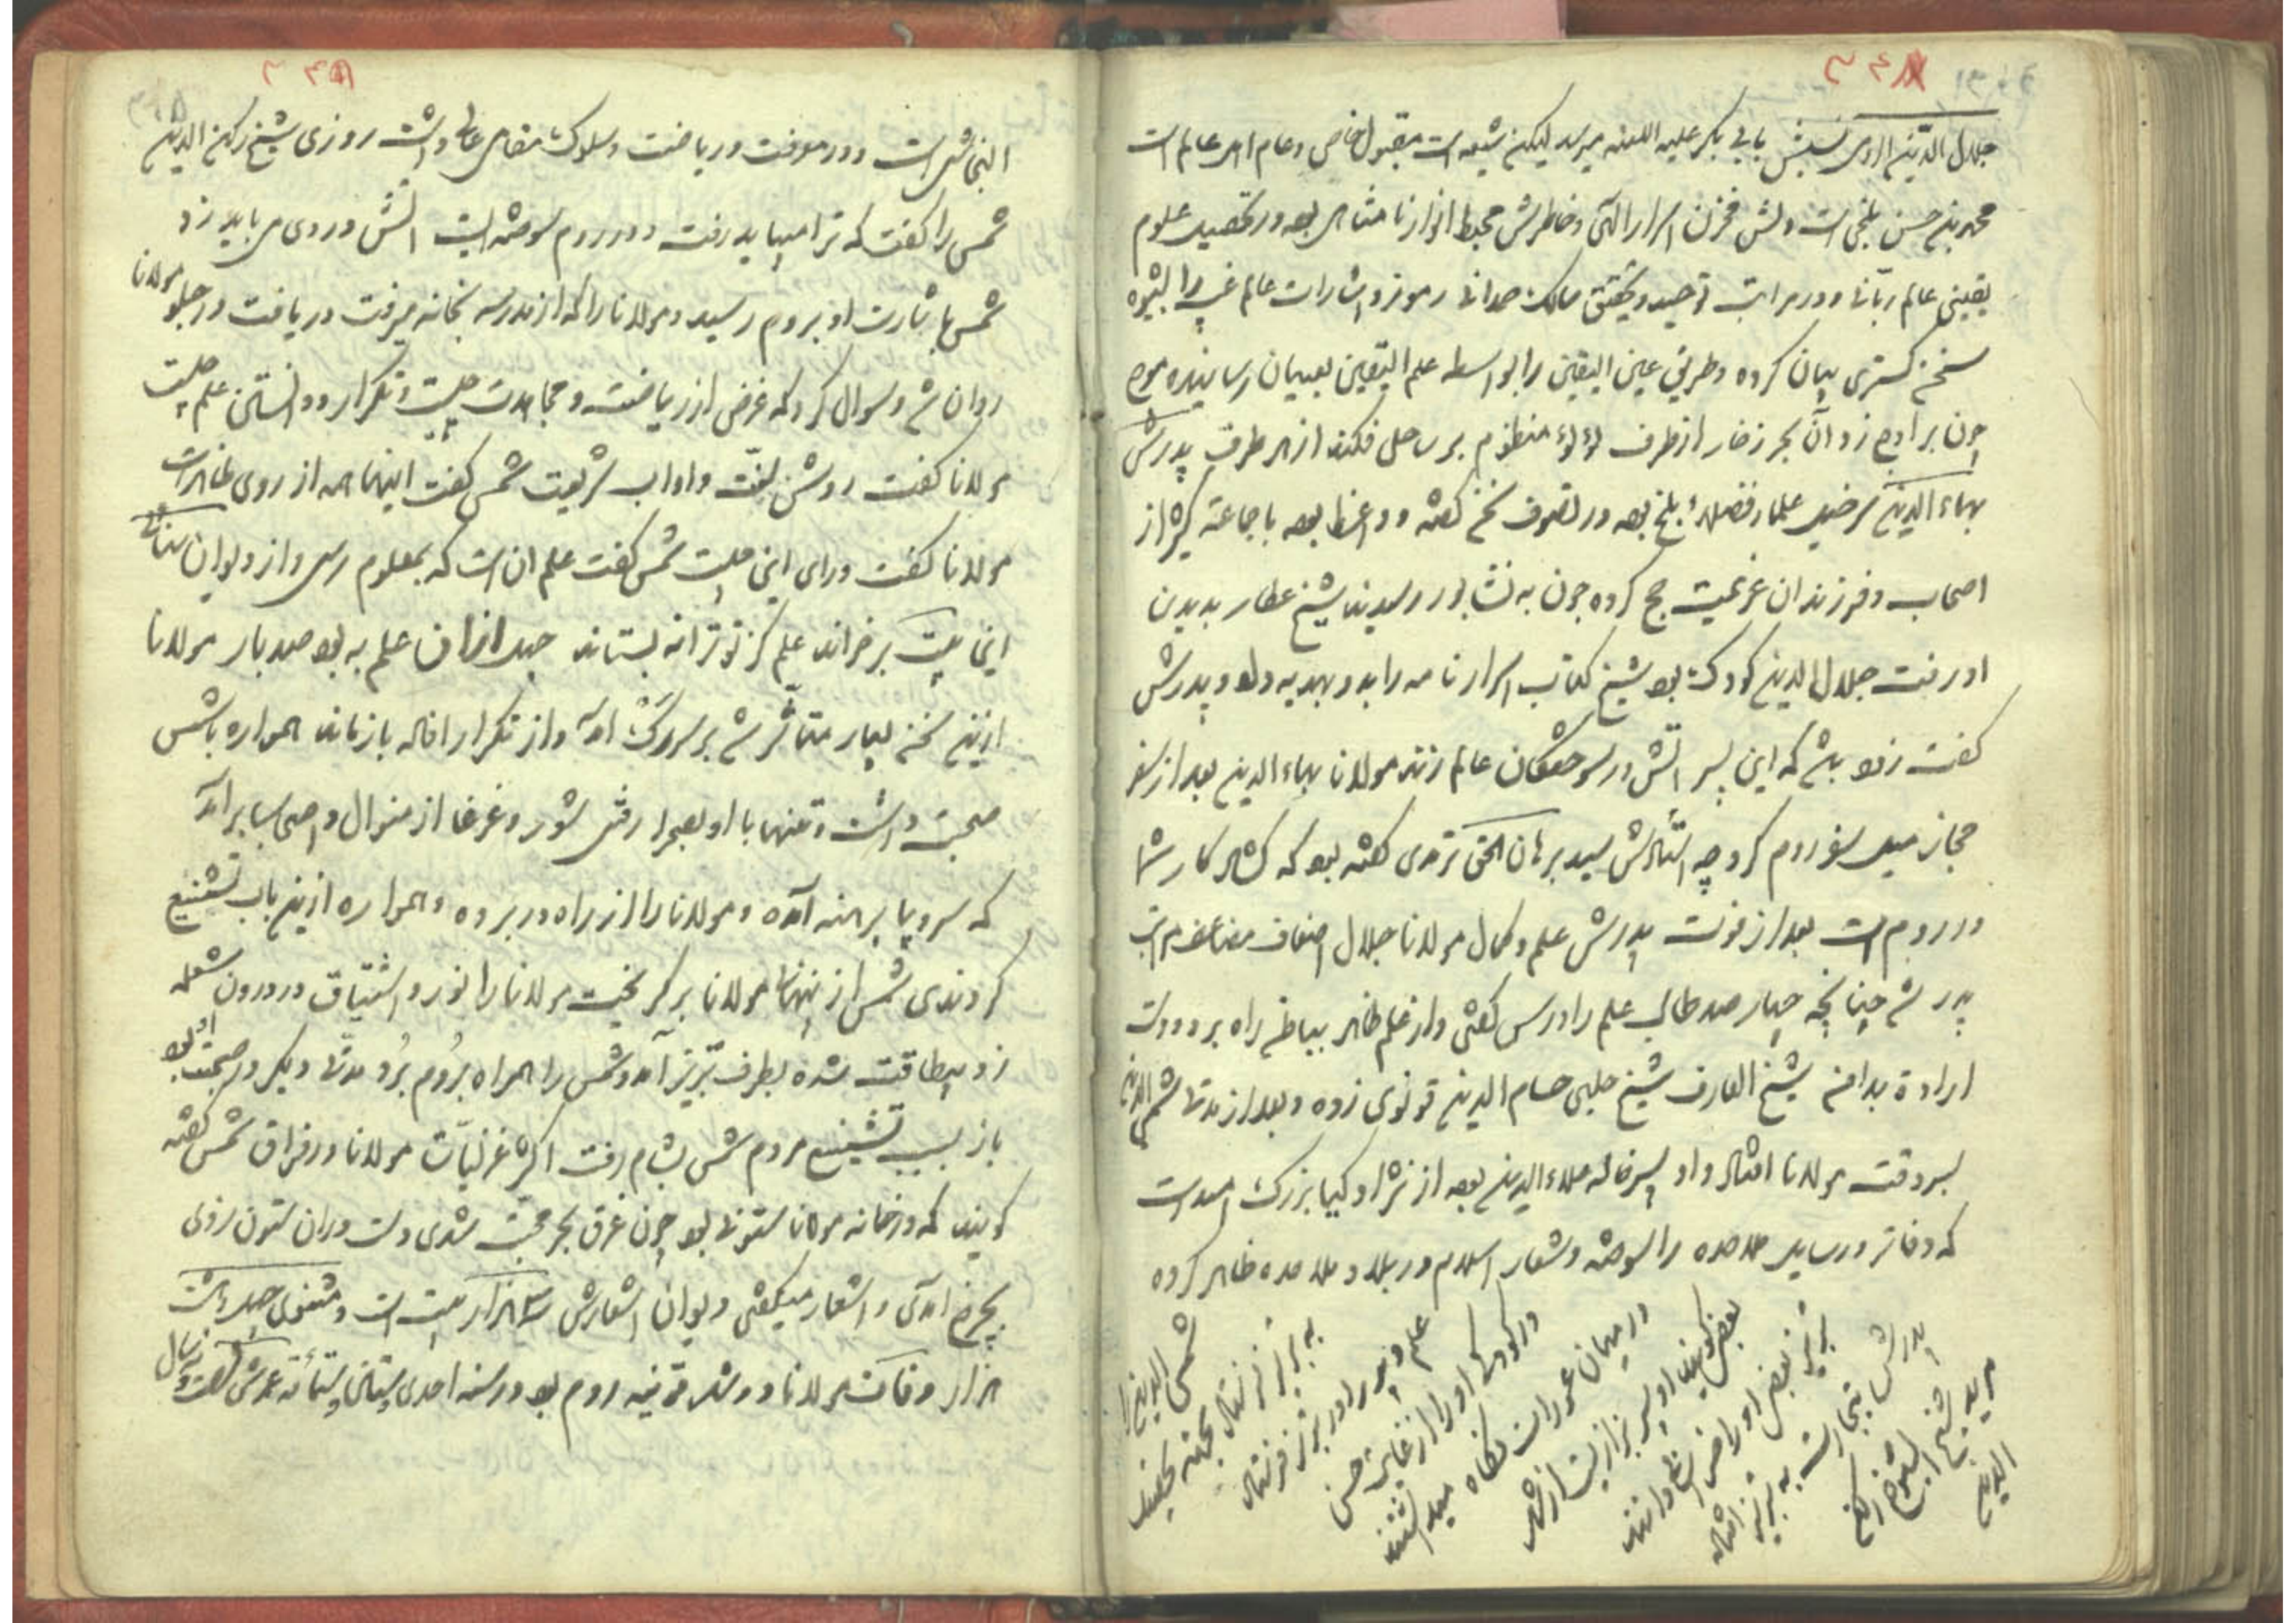 جلال الدین الرومی نسبش بابی بکر علیه اللعنه میرسد لیکن شیعه است مقبول خاص و عام اهل عالم است
محمد بن حسن بلخی است دلش مخزن اسرار الهی و خاطرش محیط انوار نامتناهی بوده در تحصیل علوم
یقینی عالم ربانی و در مراتب توحید و تحقیق سالک صمدانی رموز و اشارات عالم غیب را بشیوه
سخن گستری بیان کرده و طریق عین الیقین را بواسطه علم الیقین بعیان رسانیده موج
چون بر اوج زد آن بحر زخار از طرف لؤلؤ منظوم بر ساحل فکند از هر طرف پدرش
بهاء الدین سرخیل علما و فضلاء بلخ بوده در تصوف سخن گفته و واعظ بوده با جماعته کثیر از
اصحاب و فرزندان عزیمت حج کرده چون به نشابور رسیدند شیخ عطار بدیدن
او رفت جلال الدین کودک بود شیخ کتاب اسرارنامه را بدو بهدیه داد و پدرش
گفت زود باشد که این پسر آتش در سوختگان عالم زند مولانا بهاء الدین بعد از سفر
حجاز میل سفر روم کرد چه استادش سید برهان الحق ترمدی گفته بود که گشاد کار شما
در روم است بعد از فوت پدرش علم و کمال مولانا جلال اضعاف مضاعف مراتب
پدر شد چنانچه چهار صد طالب علم را درس گفتی و از علم ظاهر بباطن راه برد و دست
ارادة بدامن شیخ العارف شیخ چلبی حسام الدین قونوی زده و بعد از مدتی شمس الدین
بسر وقت مولانا افتاد و او پسر خاله علاء الدین بوده از نژاد کیا بزرگ امید است
که دفاتر و رسایل ملاحده را سوخته و شعار اسلام در بلاد ملاحده ظاهر کرده
شمس الدین را
به تبریز فرستاد بجهته تحصیل
علم و او را در تبریز فرستاد
در کودکی او را از غایت حسن
در میان عورات نگاه میداشتند
بعضی گویند او پسر بزازیست از شهر
تبریز بعضی او را خراسانی دانند
پدرش بتجارت به تبریز افتاده
مرید شیخ الشیوخ رکن
الدین
النجاشی است و در معرفت و ریاضت و سلوک مقامی عالی داشت روزی شیخ رکن الدین
شمس را گفت که ترا میباید رفت و در روم سوخته ایست آتش در وی می باید زد
شمس باشارت او بروم رسید و مولانا را که از مدرسه بخانه میرفت دریافت در جلو مولانا
روان شد و سوال کرد که غرض از ریاضت و مجاهدت چیست و تکرار و دانستن علم چیست
مولانا گفت روشن سنت و اداب شریعت شمس گفت اینها همه از روی ظاهر است
مولانا گفت ورای این چیست شمس گفت علم ان است که بمعلوم رسی و از دیوان سنائی
این بیت برخواند علم کز تو ترا نه بستاند جهل ازان علم به بود صد بار مولانا
ازین سخن بسیار متأثر شد بر سر مرگ آمد و از تکرار افاده بازماند همواره باشمس
صحبت داشت و تنها با او بصحرا رفتی شور و غوغا از منوال و اصحاب برآمد
که سر و پا برهنه آمده و مولانا را از راه در برده و همواره ازین باب تشنیع
کردندی شمس از پنهانی مولانا بر گریخت مولانا را نورد اشتیاق در درون شعله
زد بیطاقت شده بطرف تبریز آمد و شمس را همراه بروم برد مدتی دیگر در صحبت او بود
باز بسبب تشنیع مردم شمس بشام رفت اکثر غزلیات مولانا در فراق شمس گفته
گویند که در خانه مولانا ستونی بود چون غرق بحر محبت شدی دست در ان ستون زدی
بچرخ آمدی و اشعار میگفتی دیوان اشعارش سی هزار بیت است و مثنوی چهل و هشت
هزار وفات مولانا در شهر قونیه روم بود در سنه احدی و ستین و ستمائه عمرش شصت و نه سال